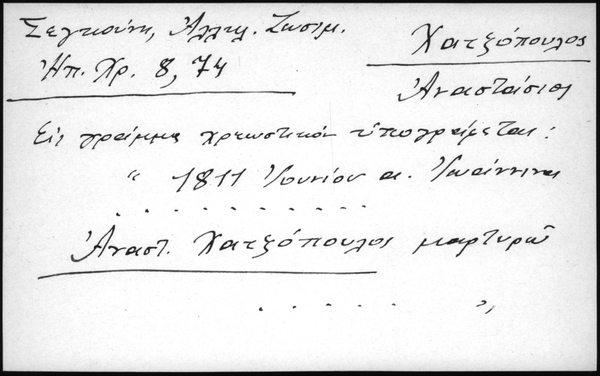 Σεγκούνη, Ἀλληλ. Ζωσιμ.
Ἠπ. Χρ. 8, 74
Χατζόπουλος
Ἀναστάσιος
Εἰς γράμμα χρεωστικὸν ὑπογράφεται:
" 1811 Ἰουνίου α. Ἰωάννινα
. . . . . . . . . . . .
Ἀναστ. Χατζόπουλος μαρτυρῶ
. . . . . "